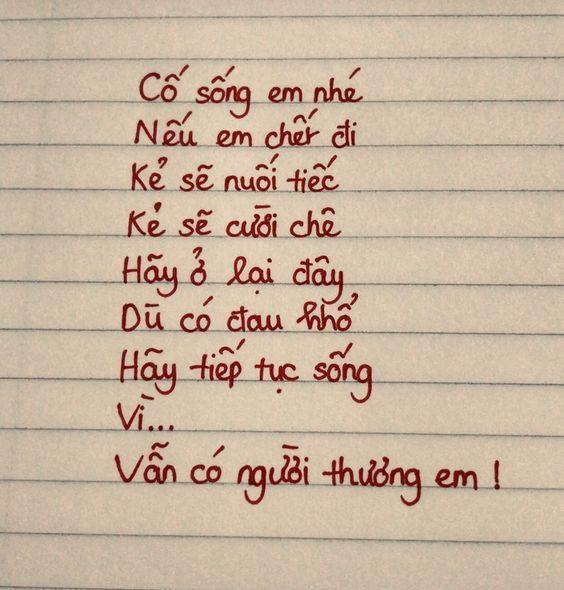 Cố sống em nhé
Nếu em chết đi
Kẻ sẽ nuối tiếc
Kẻ sẽ cười chê
Hãy ở lại đây
Dù có đau khổ
Hãy tiếp tục sống
Vì...
Vẫn có người thương em !